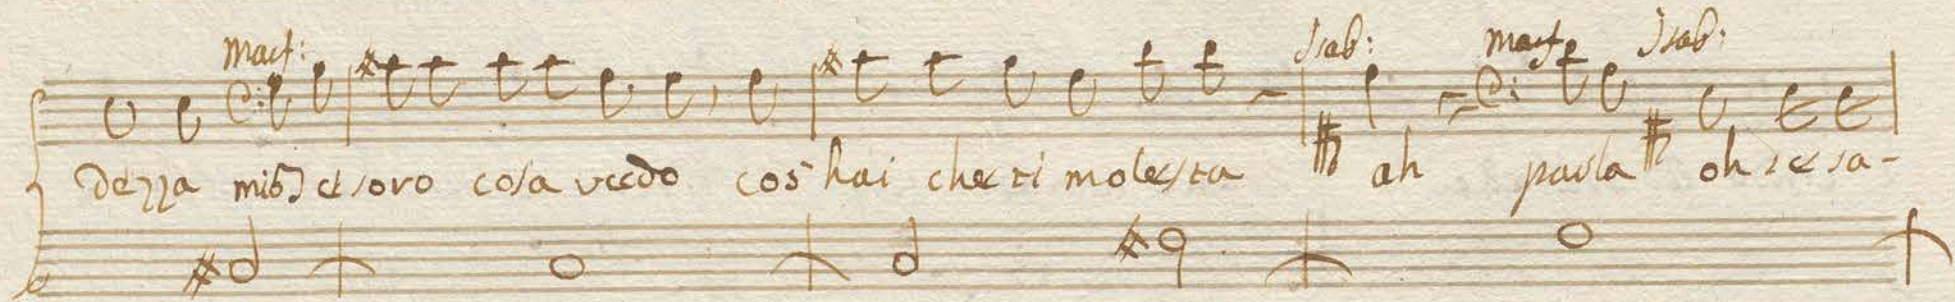 Mas: Isab: mas Isab:
dezza mio Tesoro cosa vedo cos' hai che ti molesta ah parla oh se sa-